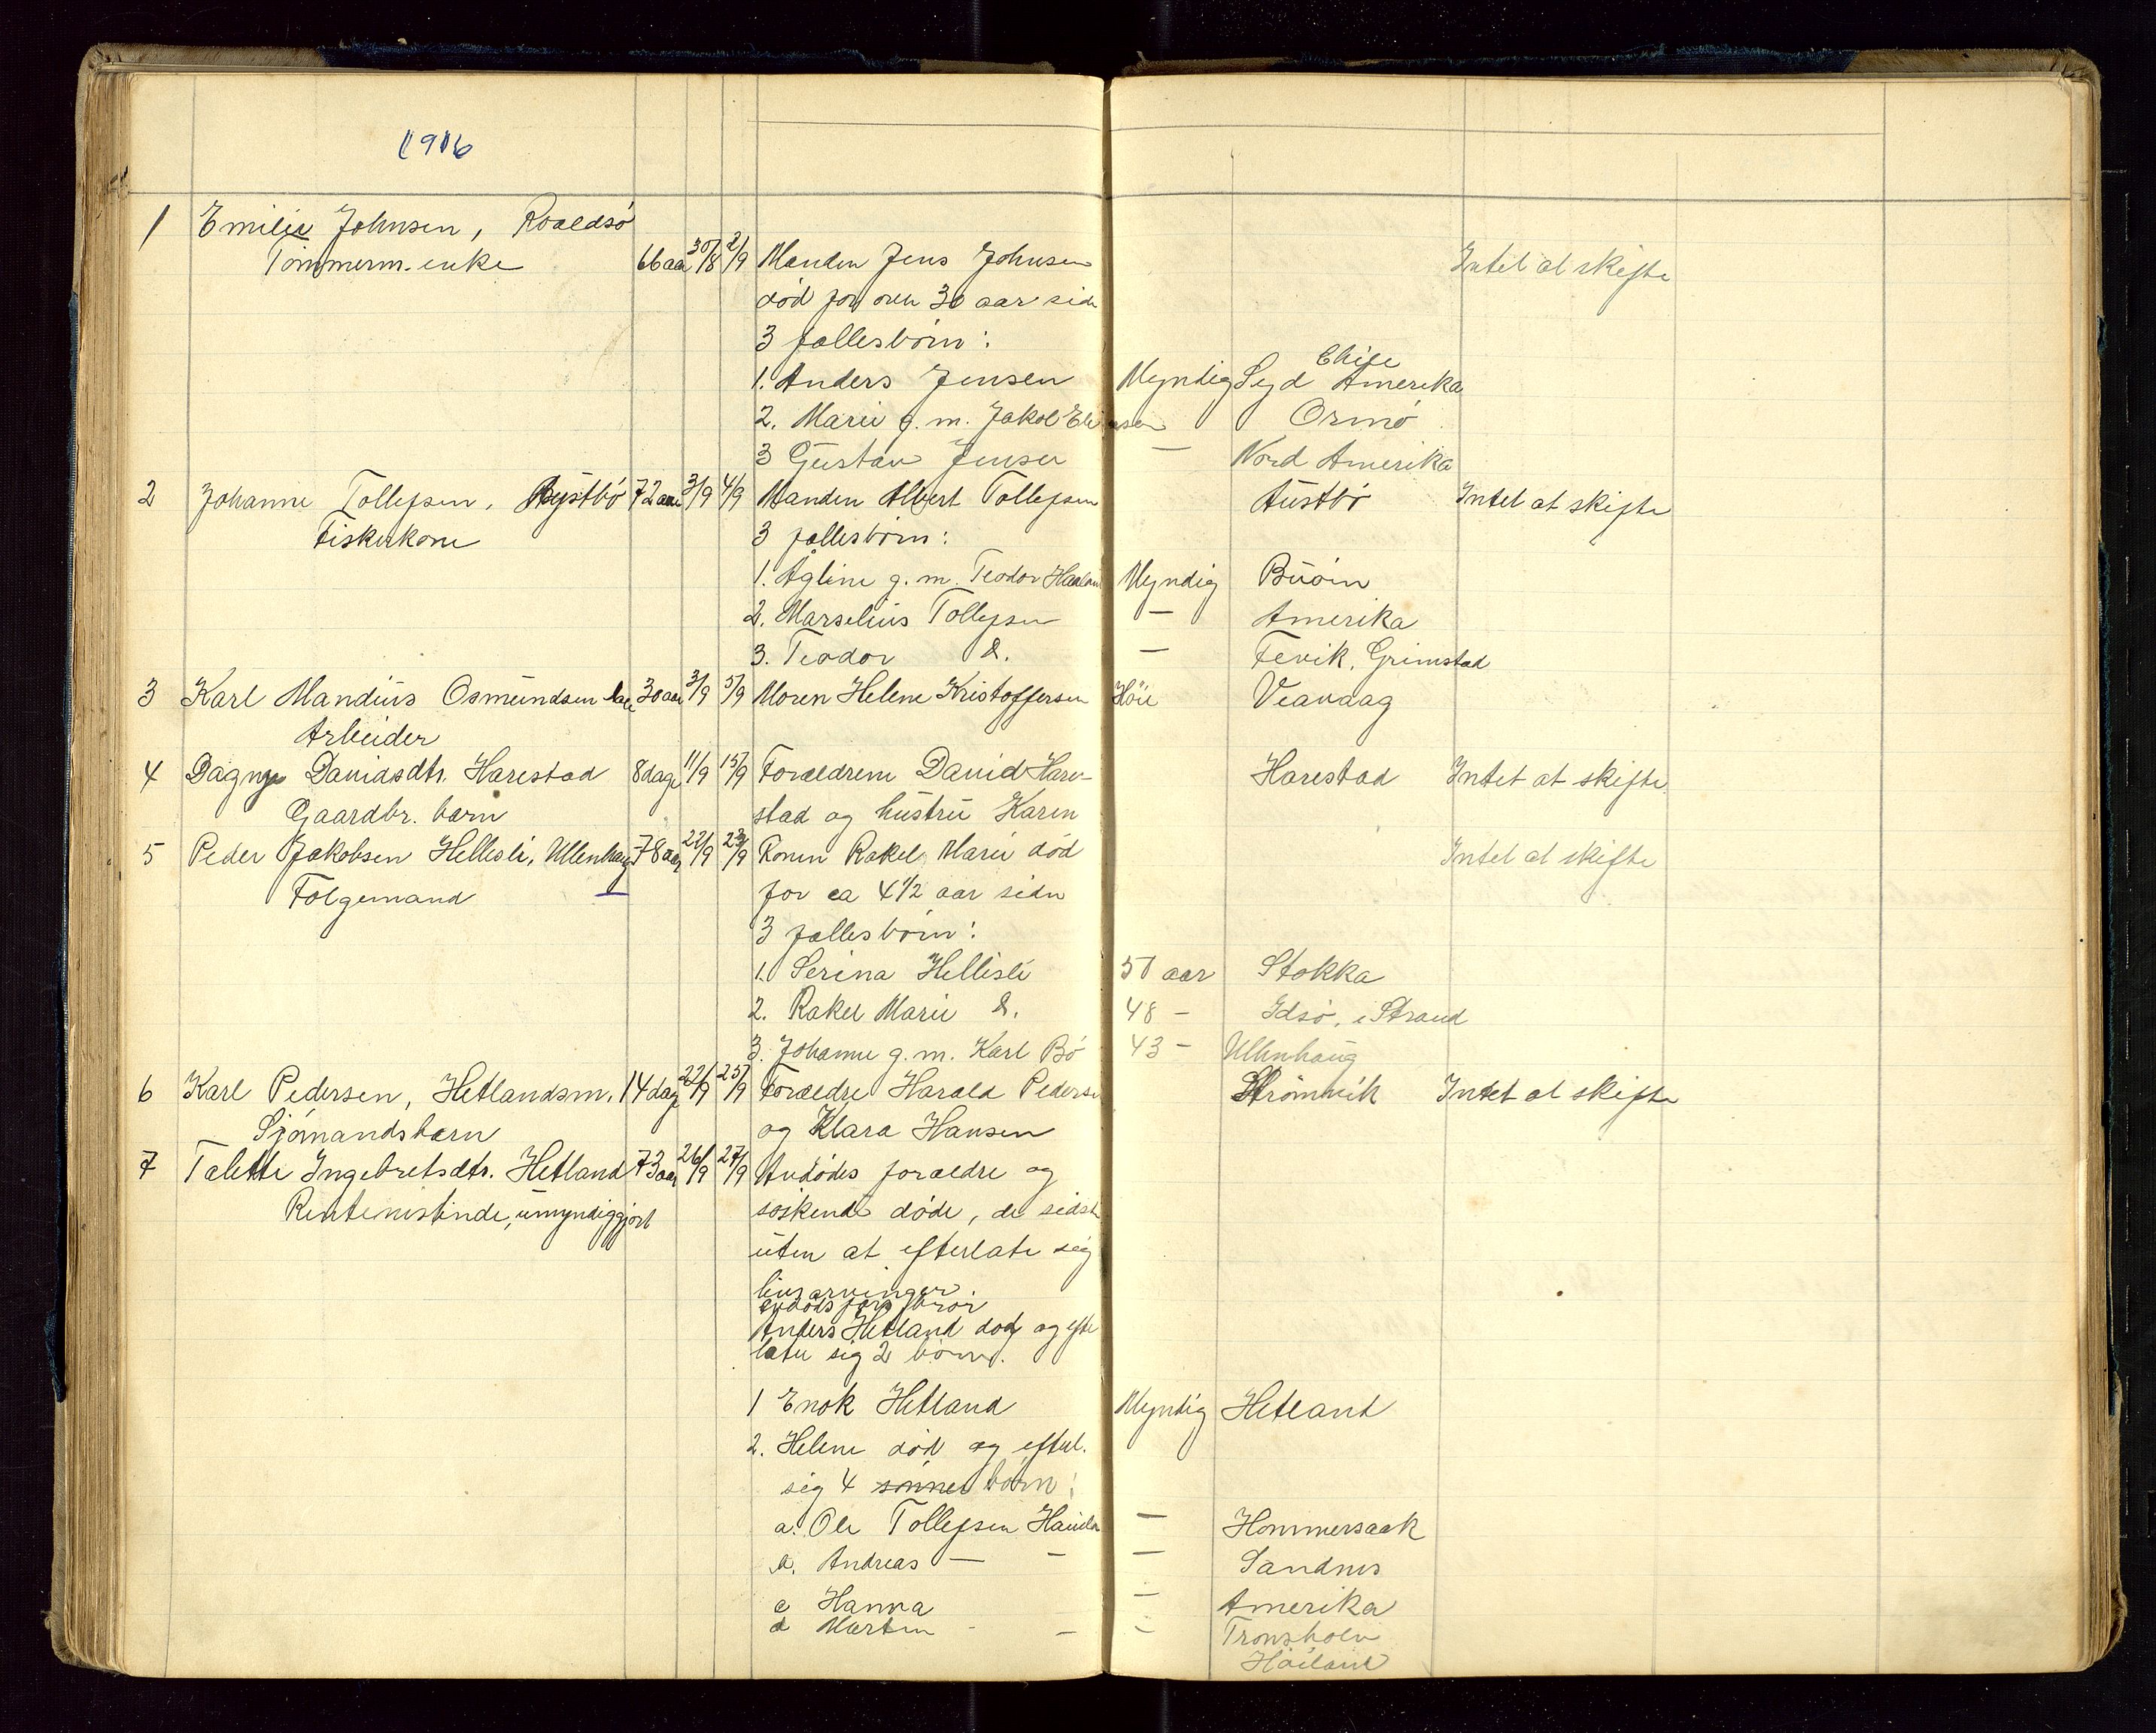 1916
1 Emilie Johnsen, Roaldsø
Tømmerm. enke 66 aar 30/8 2/9 Manden Jens Johnsen Intet at skifte
død for over 30 aar siden
3 fællesbørn:
Chile
1. Anders Jensen Myndig Syd Amerika
2. Marie g. m. Jakob Ormø
3 Gustav Jensen — Nord Amerika
2 Johanne Tollefsen, Austbø 72 aar 3/9 4/9 Manden Albert Tollefsen Austbø Intet at skifte
Fiskerkone 3 fællesbørn:
1. Agline g. m. Teodor Myndig Buøen
2. Marselius Tollefsen — Amerika
3. Teodor do. — Fevik, Grimstad
3 Karl Mandius Osmundsen 30 aar 3/9 5/9 Moren Helene Kristoffersen Høie Veavaag
Arbeider
4 Dagny Davidsdtr. Harestad 8 dage 11/9 15/9 Forældrene David Hare- Harestad Intet at skifte
Gaardbr. barn stad og hustru Karen
5 Peder Jakobsen Hellesli, Ullenhaug 78 aar 22/9 23/9 Konen Rakel Marie død Intet at skifte
Følgemand for ca 4 1/2 aar siden
3 fællesbørn:
1. Serina Hellisli 51 aar Stokka
2. Rakel Marie do. 48 - Idsø, i Strand
3. Johanne g. m. Karl Bø 43 - Ullenhaug
6 Karl Pedersen, Hetlandsm. 14 dage 22/9 25/9 Forældre Harald Pedersen Strømvik Intet at skifte
Sjømandsbarn og Klara Hansen
7 Talette Ingebretsdtr. Hetland 73 aar 26/9 27/9 Avdødes forældre og
Rentenistinde, umyndiggjort søskende døde, de sidste
uten at efterlate sig
livsarvinger.
avdøds fars bror
Anders Hetland død og efter
later sig 2 børn.
1 Enok Hetland Myndig Hetland
2. Helene død og efterl.
sig 4 sønner børn:
a. Ole Tollefsen — Hommersaak
b. Andreas — - — Sandnes
c Hanna — Amerika
d Martin - — - Tronsholn
Høiland